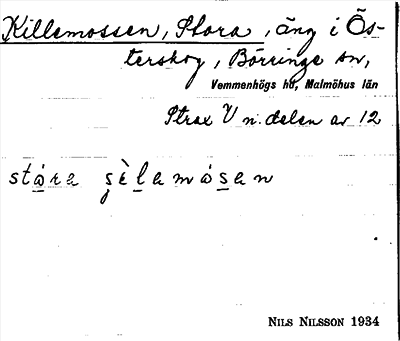 Killemossen, Stora, äng i Ös-
terskog, Börringe sn,
Vemmenhögs hd, Malmöhus län
Strax V n. delen av 12
stára sèlamåsan
NILS NILSSON 1934